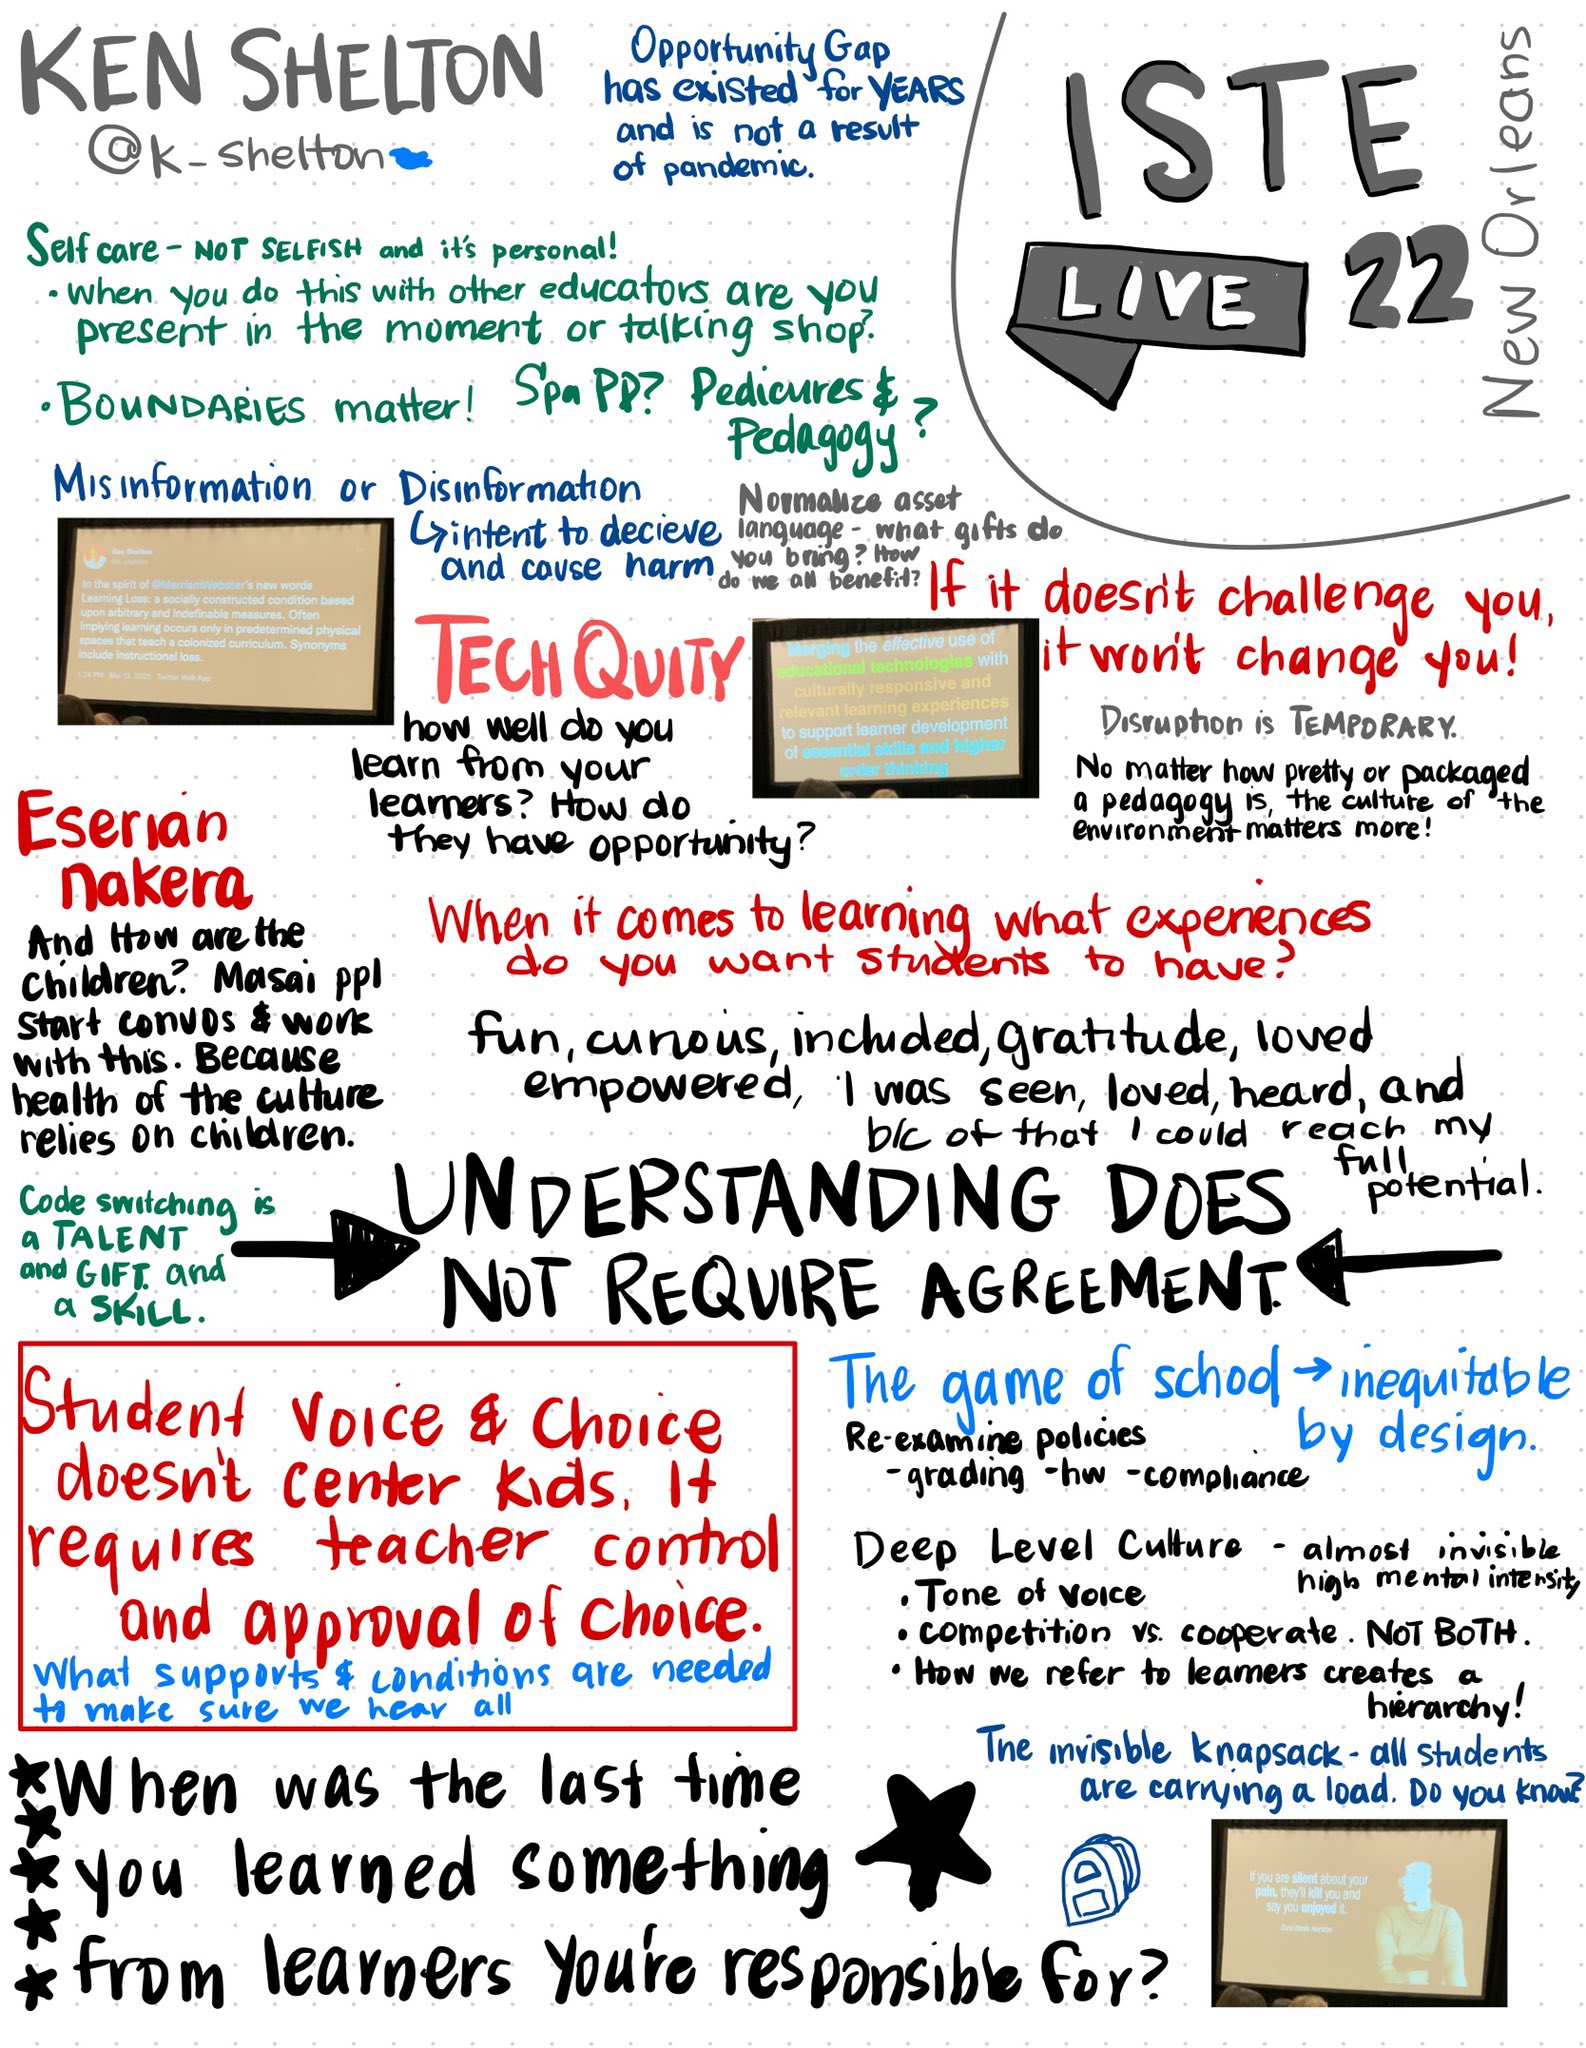 KEN SHELTON
@k_shelton
Opportunity Gap
has existed for YEARS
and is not a result
of pandemic.
ISTE
LIVE 22
New Orleans
Self care - NOT SELFISH and it's personal!
• When you do this with other educators are you
present in the moment or talking shop?
• BOUNDARIES matter!
Spa PD? Pedicures &
Pedagogy?
Misinformation or Disinformation
↳ intent to decieve
and cause harm
Normalize asset
language - what gifts do
you bring? How
do we all benefit?
Ken Shelton
In the spirit of @MerriamWebster's new words
Learning Loss: a socially constructed condition based
upon arbitrary and indefinable measures. Often
implying learning occurs only in predetermined physical
spaces that teach a colonized curriculum. Synonyms
include instructional loss.
7:24 PM · Mar 12, 2021 · Twitter Web App
TECH QUITY
how well do you
learn from your
learners? How do
they have opportunity?
Merging the effective use of
educational technologies with
culturally responsive and
relevant learning experiences
to support learner development
of essential skills and higher
order thinking
If it doesn't challenge you,
it won't change you!
Disruption is TEMPORARY.
No matter how pretty or packaged
a pedagogy is, the culture of the
environment matters more!
Eserian
nakera
And How are the
children? Masai ppl
start convos & work
with this. Because
health of the culture
relies on children.
When it comes to learning what experiences
do you want students to have?
fun, curious, included, gratitude, loved
empowered, I was seen, loved, heard, and
b/c of that I could reach my
full
potential.
Code switching is
a TALENT
and GIFT and
a SKILL.
UNDERSTANDING DOES
NOT REQUIRE AGREEMENT.
Student Voice & Choice
doesn't center kids. It
requires teacher control
and approval of choice.
What supports & conditions are needed
to make sure we hear all
The game of school → inequitable
by design.
Re-examine policies
- grading - hw - compliance
Deep Level Culture - almost invisible
high mental intensity
• Tone of voice
• competition vs. cooperate. NOT BOTH.
• How we refer to learners creates a
hierarchy!
The invisible knapsack - all students
are carrying a load. Do you know?
When was the last time
you learned something
from learners you're responsible for?
If you are silent about your
pain, they'll kill you and
say you enjoyed it.
Zora Neale Hurston